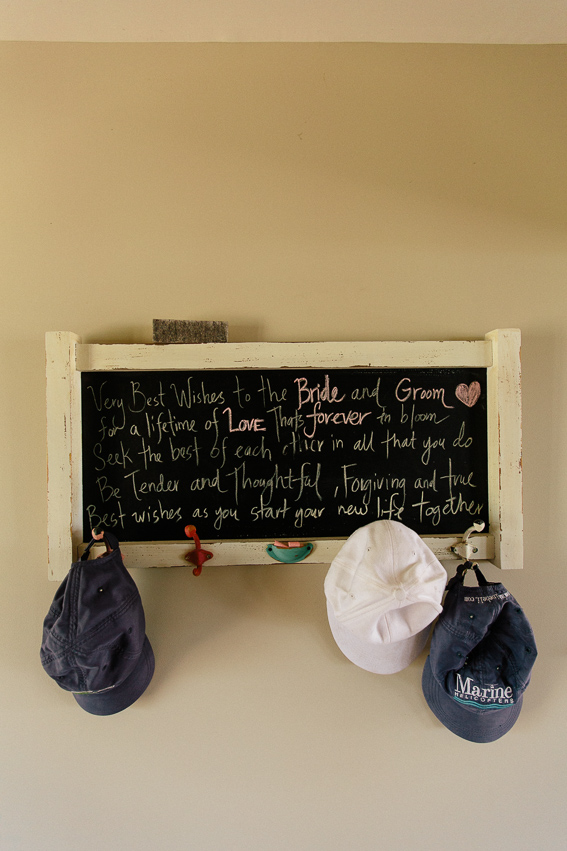 Very Best Wishes to the Bride and Groom
for a lifetime of LOVE Thats forever in bloom
Seek the best of each other in all that you do
Be Tender and Thoughtful, Forgiving and true
Best wishes as you start your new life together
Marine
HELICOPTERS